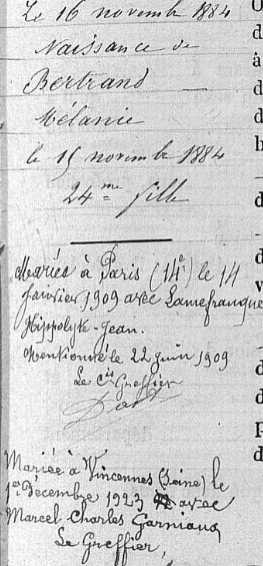 Le 16 novembre 1884
Naissance de
Bertrand
Mélanie
le 15 novembre 1884
24me fille
Mariée à Paris (14e) le 14
janvier 1909 avec Lamefranque
Hippolyte-Jean.
Mentionné le 22 juin 1909
Le Cis Greffier
Mariée à Vincennes (Seine) le
1er Décembre 1923 avec
Marcel Charles Garniaux
Le Greffier,